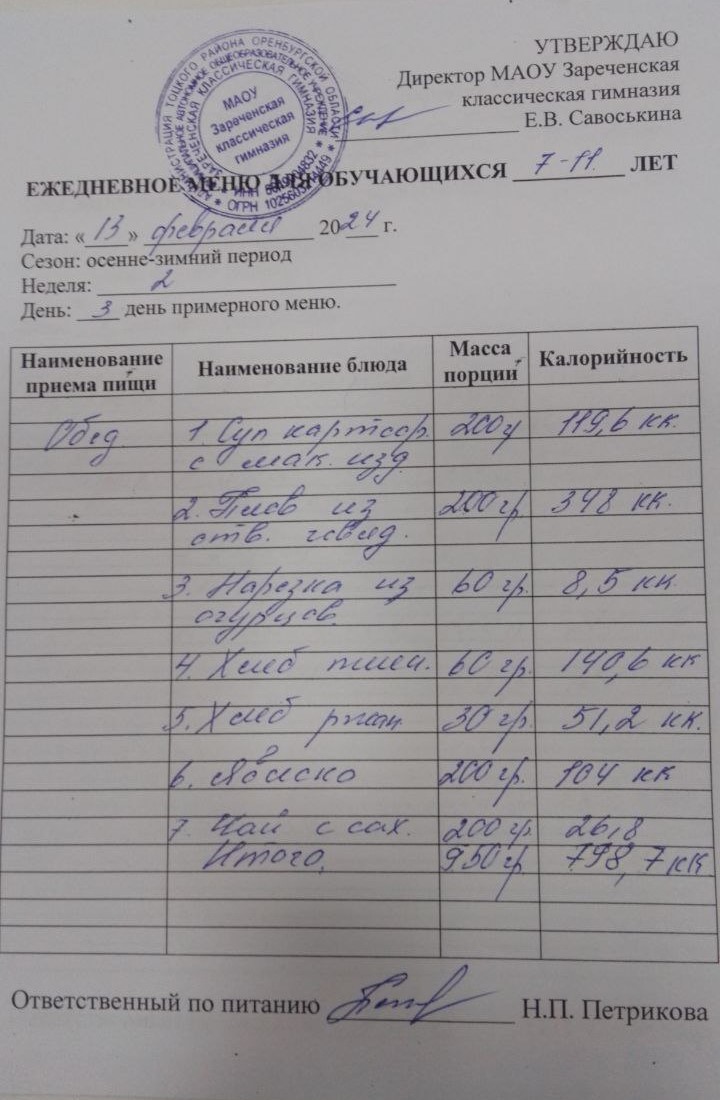 УТВЕРЖДАЮ
Директор МАОУ Зареченская
классическая гимназия
Е.В. Савоськина
АДМИНИСТРАЦИЯ ТОЦКОГО РАЙОНА ОРЕНБУРГСКОЙ ОБЛАСТИ
МУНИЦИПАЛЬНОЕ АВТОНОМНОЕ ОБЩЕОБРАЗОВАТЕЛЬНОЕ УЧРЕЖДЕНИЕ
ЗАРЕЧЕНСКАЯ КЛАССИЧЕСКАЯ ГИМНАЗИЯ
МАОУ
Зареченская
классическая
гимназия
ИНН
ОГРН
ЕЖЕДНЕВНОЕ МЕНЮ ДЛЯ ОБУЧАЮЩИХСЯ 7-11 ЛЕТ
Дата: «13» февраля 2024 г.
Сезон: осенне-зимний период
Неделя: 2
День: 3 день примерного меню.
Наименование приема пищи Наименование блюда Масса порции Калорийность
Обед 1. Суп картоф. 200г 119,6 кк.
с мак. изд.
2. Плов из 200 гр. 348 кк.
отв. говяд.
3. Нарезка из 60 гр. 8,5 кк
огурцов.
4. Хлеб пшен. 60 гр. 140,6 кк
5. Хлеб ржан 30 гр. 51,2 кк.
6. Яблоко 200 гр. 104 кк
7. Чай с сах. 200 гр. 26,8
Итого. 950 гр. 798,7 кк
Ответственный по питанию Н.П. Петрикова